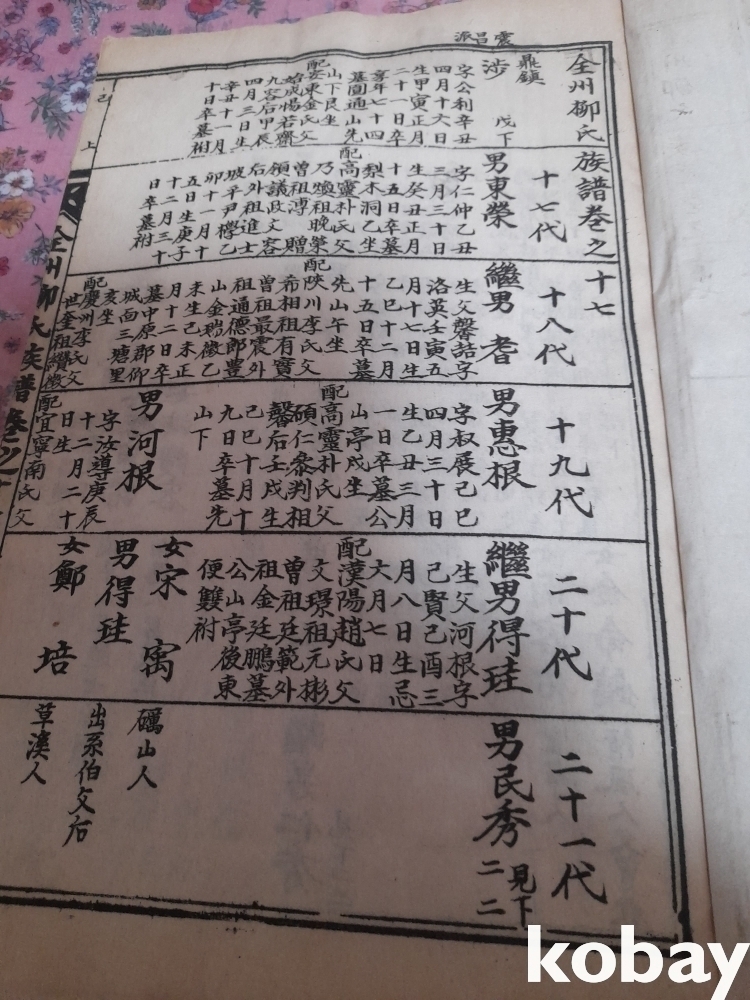 震昌派
全州柳氏族譜卷之十七
鼎鎮
涉 戊下
字公利辛丑
四月十六日
生甲寅正月
二十一日卒
享年七十四
墓圓通山先
山下艮坐
配安東金氏父
始成惕若齋
九容后甲辰
四月三日生
辛丑十一月
十日卒墓祔
十七代
男東榮
字仁仲乙丑
三月三十日
生癸丑正月
十五日卒墓
梨木洞乙坐
配高靈朴氏父
乃煥祖晚榮
曾祖溥贈
領議政文容
后外祖進士
坡平尹 乙
卯十一月十
五日生庚子
十二月三十
日卒墓祔
十八代
繼男 耉
生父馨喆字
洛英壬寅五
月十七日生
乙巳十二月
十五日卒墓
先山午坐
配陜川李氏父
希相祖有實
曾祖最震外
祖通德郎豊
山金瑞徵乙
未生己未正
月十二日卒
墓中原郡仰
城面三塘里
亥坐
配慶州李氏父
世奎祖纘徵
十九代
男惠根
字叔展己巳
四月三十日
生乙丑三月
一日卒墓公
山亭戌坐
配高靈朴氏父
碩仁參判祖
馨后壬戌生
己巳十月十
九日卒墓先
山下
男河根
字汝導庚辰
十二月二十
日生
配宜寧南氏父
二十代
繼男得珪
生父河根字
己賢己酉三
月八日生忌
六月七日
配漢陽趙氏父
文璟祖元彬
曾祖廷範外
祖金廷鵬墓
公山亭後東
便雙祔
女宋 寯
男得珪
女鄭 培
二十一代
男民秀 見下二二
礪山人
出系伯父后
草溪人
己 上
全州柳氏族譜卷之十
kobay